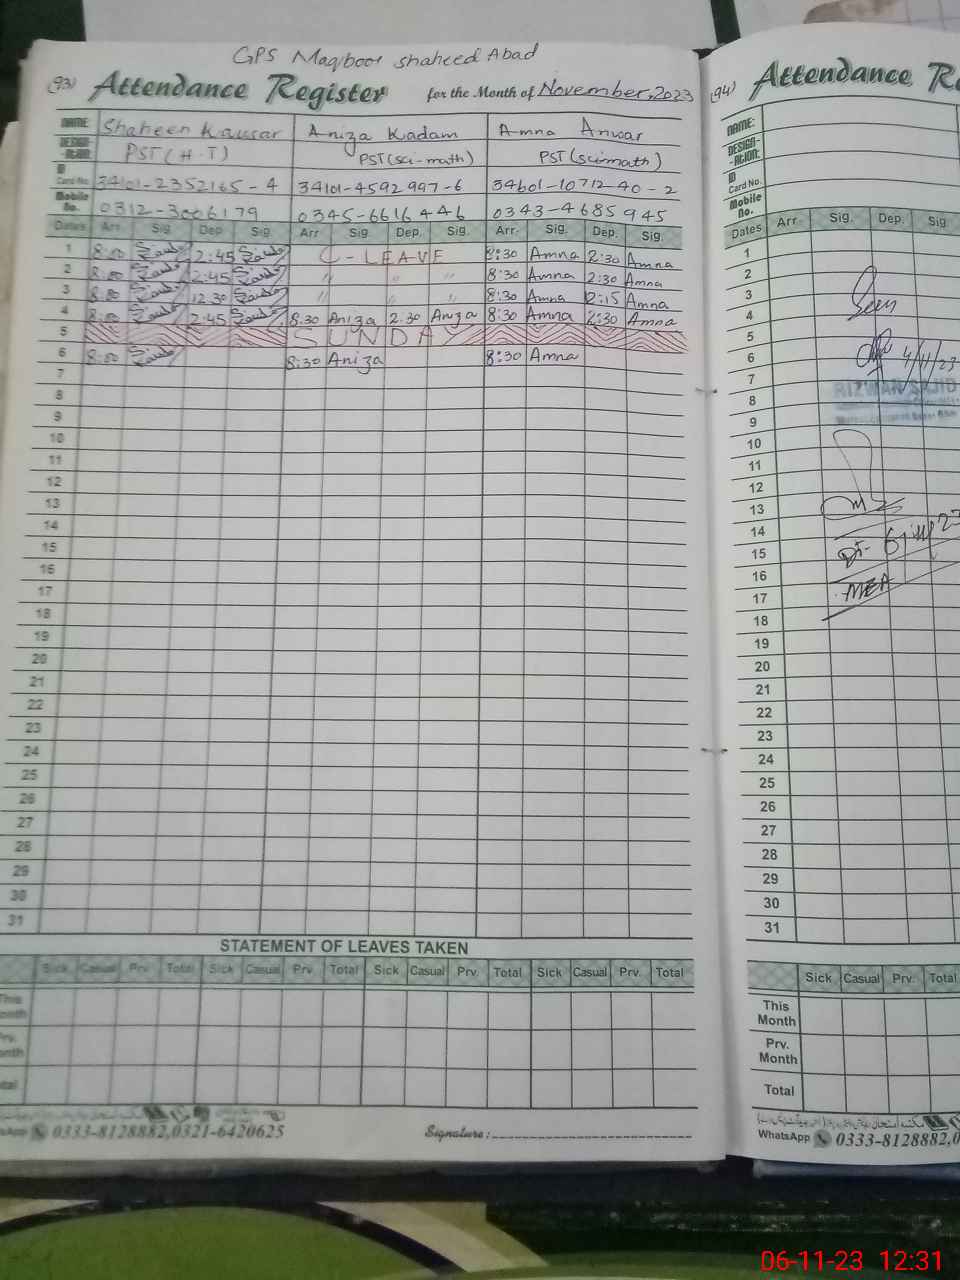 GPS Maqbool Shaheed Abad
(93) Attendance Register for the Month of November, 2023
NAME: Shaheen Kausar Aniza Kadam Amna Anwar
DESIGN-ATION: PST (H.T) PST (sci-math) PST (sci math)
ID Card No. 34101-2352165-4 34101-4592997-6 34601-10712-40-2
Mobile No. 0312-3006179 0345-6616446 0343-4685945
Dates Arr. Sig. Dep. Sig. Arr. Sig. Dep. Sig. Arr. Sig. Dep. Sig.
1 8:00 2:45 C-LEAVE 8:30 Amna 2:30 Amna
2 8:00 2:45 " " " 8:30 Amna 2:30 Amna
3 8:00 12:30 " " " 8:30 Amna 12:15 Amna
4 8:00 2:45 8:30 Aniza 2:30 Aniza 8:30 Amna 2:30 Amna
5 SUNDAY
6 8:00 8:30 Aniza 8:30 Amna
7
8
9
10
11
12
13
14
15
16
17
18
19
20
21
22
23
24
25
26
27
28
29
30
31
STATEMENT OF LEAVES TAKEN
Sick Casual Prv. Total Sick Casual Prv. Total Sick Casual Prv. Total Sick Casual Prv. Total
This Month
Prv. Month
Total
0333-8128882,0321-6420625 Signature:
(94) Attendance
NAME:
DESIGN-ATION:
ID Card No.
Mobile No.
Dates Arr. Sig. Dep. Sig.
1
2
3
4
5
6 4/11/23
7
8 RIZWAN SAJID
9
10
11
12
13
14
15 Dt- 6/11/23
16
17 MEA
18
19
20
21
22
23
24
25
26
27
28
29
30
31
Sick Casual Prv. Total
This Month
Prv. Month
Total
WhatsApp 0333-8128882,0
06-11-23 12:31